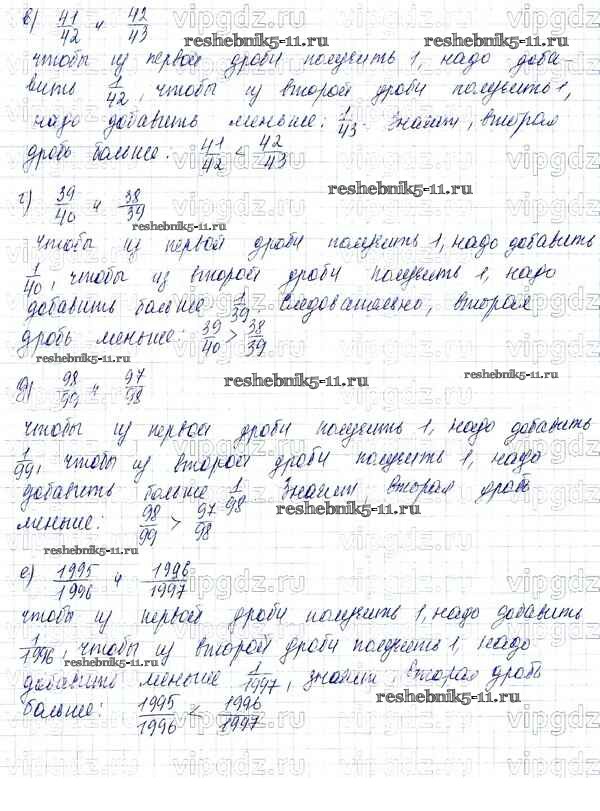 в) 41/42 и 42/43
reshebnik5-11.ru reshebnik5-11.ru
чтобы из первой дроби получить 1, надо доба-
вить 1/42, чтобы из второй дроби получить 1,
надо добавить меньше: 1/43. Значит, вторая
дробь больше: 41/42 < 42/43
reshebnik5-11.ru
г) 39/40 и 38/39
reshebnik5-11.ru
чтобы из первой дроби получить 1, надо добавить
1/40, чтобы из второй дроби получить 1, надо
добавить больше 1/39. Следовательно, вторая
дробь меньше: 39/40 > 38/39
reshebnik5-11.ru
reshebnik5-11.ru
д) 98/99 и 97/98
чтобы из первой дроби получить 1, надо добавить
1/99, чтобы из второй дроби получить 1, надо
добавить больше 1/98. Значит, вторая дробь
меньше: 98/99 > 97/98
reshebnik5-11.ru
reshebnik5-11.ru
е) 1995/1996 и 1996/1997
чтобы из первой дроби получить 1, надо добавить
1/1996, чтобы из второй дроби получить 1, надо
reshebnik5-11.ru
добавить меньше 1/1997, значит вторая дробь
больше: 1995/1996 < 1996/1997
reshebnik5-11.ru
vipgdz.ru